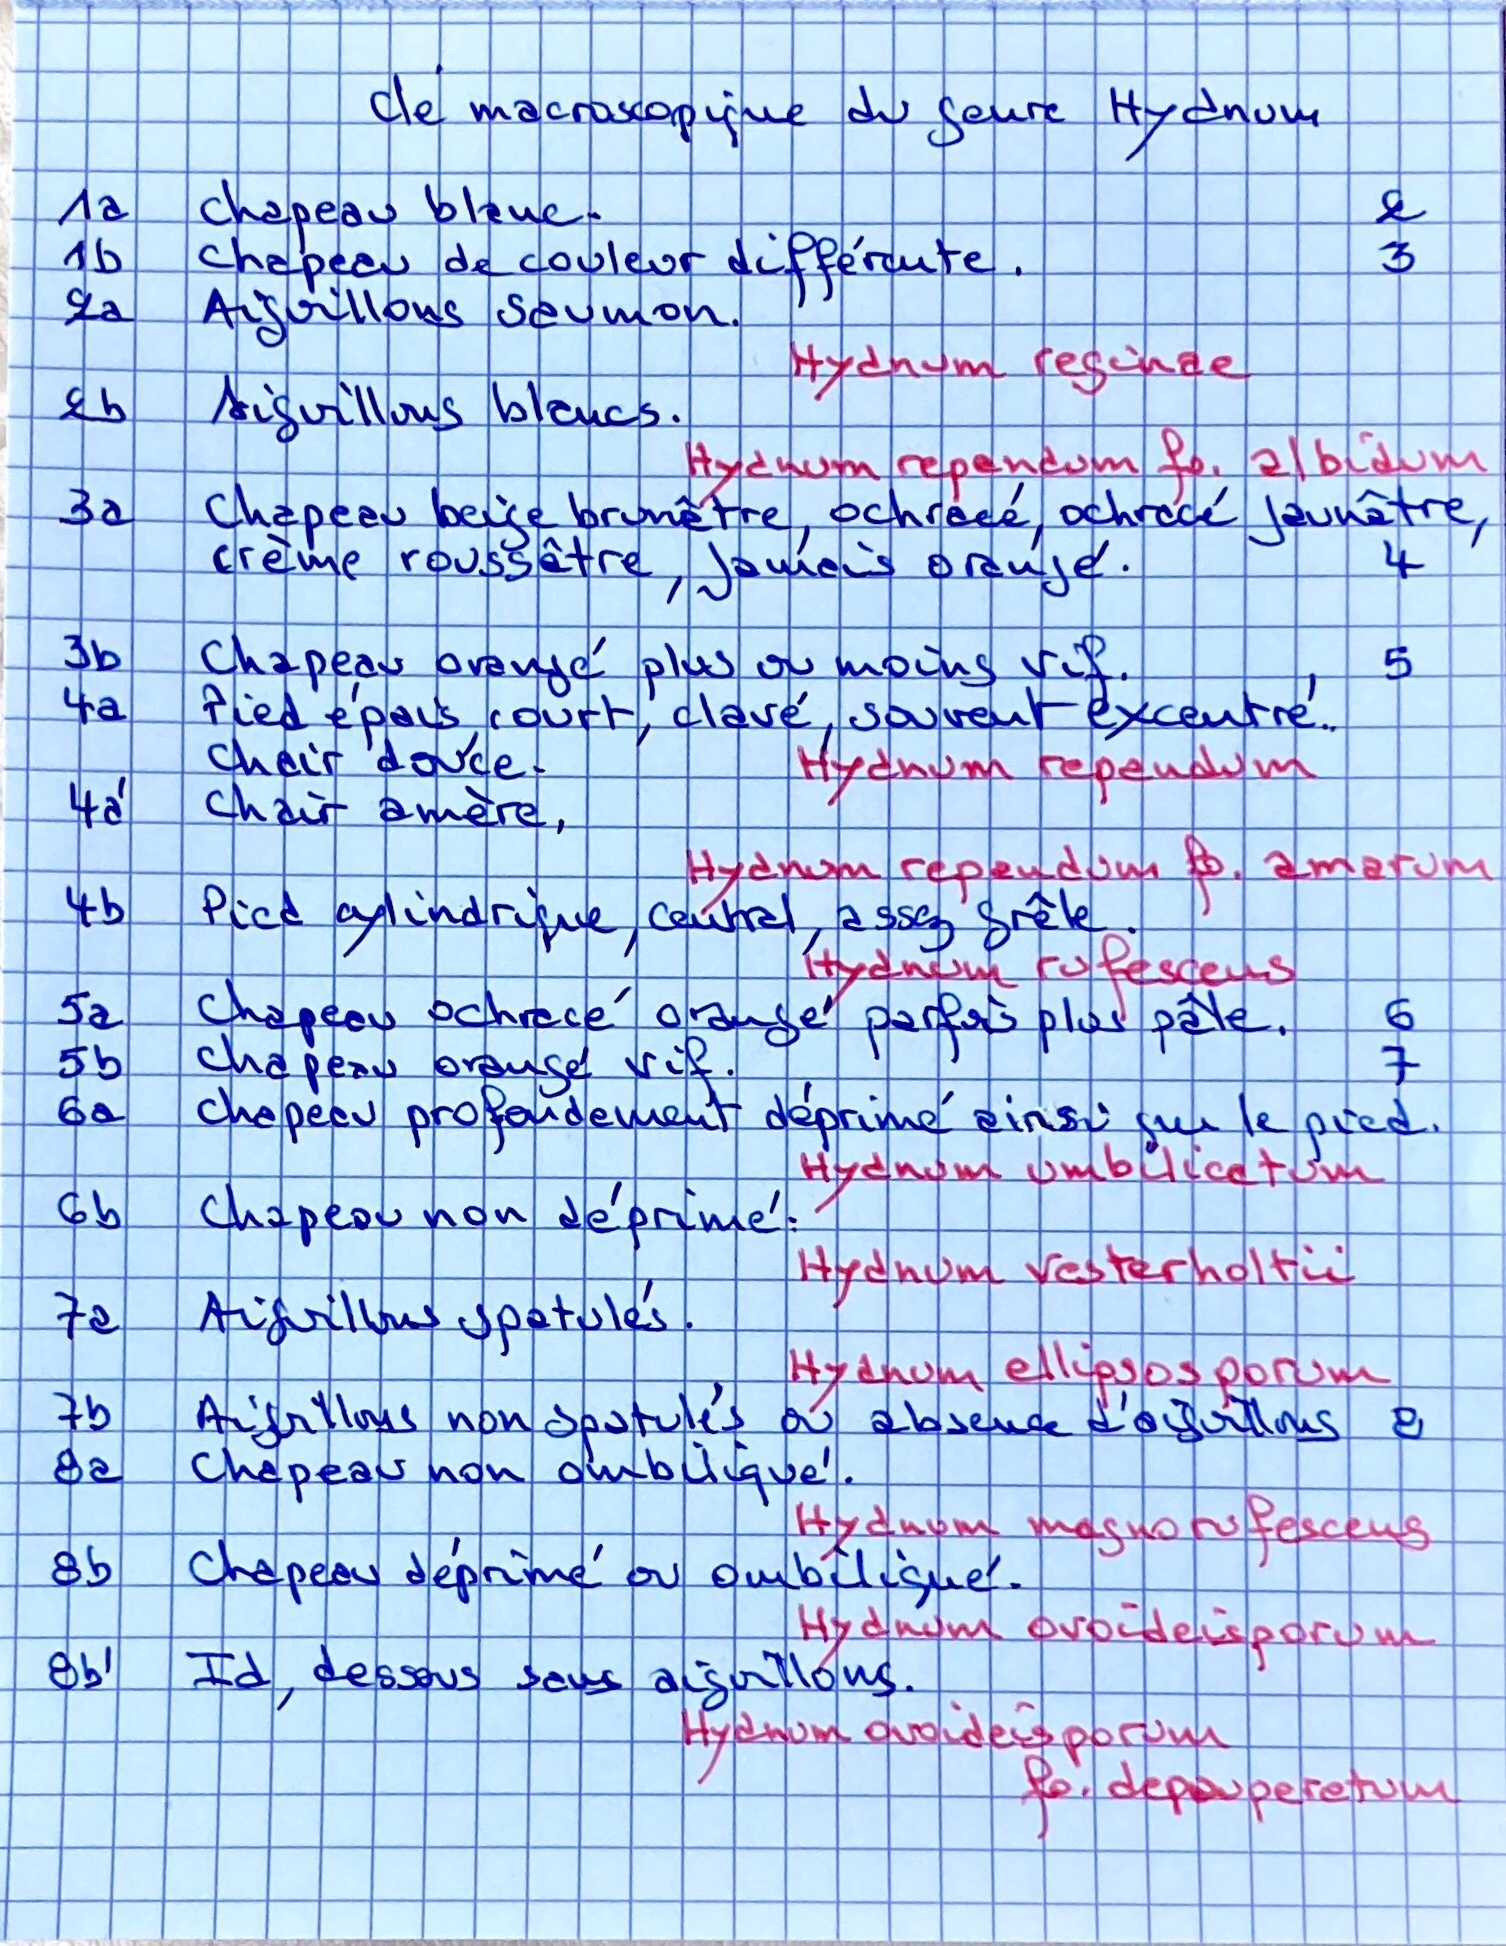 Clé macroscopique du genre Hydnum
1a Chapeau blanc. 2
1b Chapeau de couleur différente. 3
2a Aiguillons saumon.
Hydnum reginae
2b Aiguillons blancs.
Hydnum repandum fo. albidum
3a Chapeau beige brunâtre, ochracé, ochracé jaunâtre,
crème roussâtre, jamais orangé. 4
3b Chapeau orangé plus ou moins vif. 5
4a Pied épais, court, clavé, souvent excentré.
Chair douce. Hydnum repandum
4a' Chair amère.
Hydnum repandum fo. amarum
4b Pied cylindrique, central, assez grêle.
Hydnum rufescens
5a Chapeau ochracé orangé parfois plus pâle. 6
5b Chapeau orangé vif. 7
6a Chapeau profondement déprimé ainsi que le pied.
Hydnum umbilicatum
6b Chapeau non déprimé.
Hydnum vesterholtii
7a Aiguillons spatulés.
Hydnum ellipsosporum
7b Aiguillons non spatulés ou absence d'aiguillons 8
8a Chapeau non ombiliqué.
Hydnum magnorufescens
8b Chapeau déprimé ou ombiliqué.
Hydnum ovoideisporum
8b' Id, dessous sans aiguillons.
Hydnum ovoideisporum
fo. depauperatum